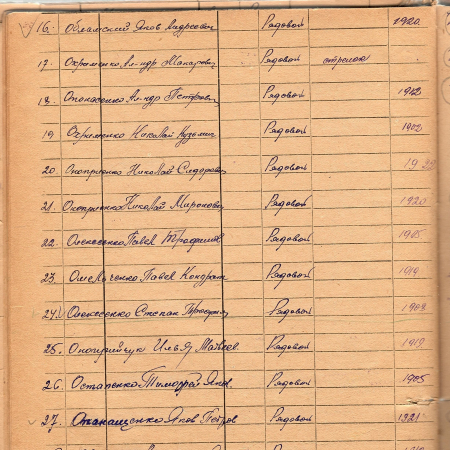 16. Обламский Яков Андреевич Рядовой 1920
17. Охраменко Ал-ндр Макарович Рядовой стрелок
18. Опанасенко Ал-ндр Петрович Рядовой 1912
19. Охрименко Николай Кузьмич Рядовой 1902
20. Оноприенко Николай Сидорович Рядовой
21. Оноприенко Николай Миронович Рядовой 1920
22. Олексеенко Павел Трофимов Рядовой 1905
23. Омельченко Павел Кондрат Рядовой 1919
24. Олексеенко Степан Рядовой 1908
25. Оногрийчук Илья Матвеев Рядовой 1919
26. Остапенко Тимофей Яков. Рядовой 1905
27. Опанащенко Яков Петров Рядовой 1921